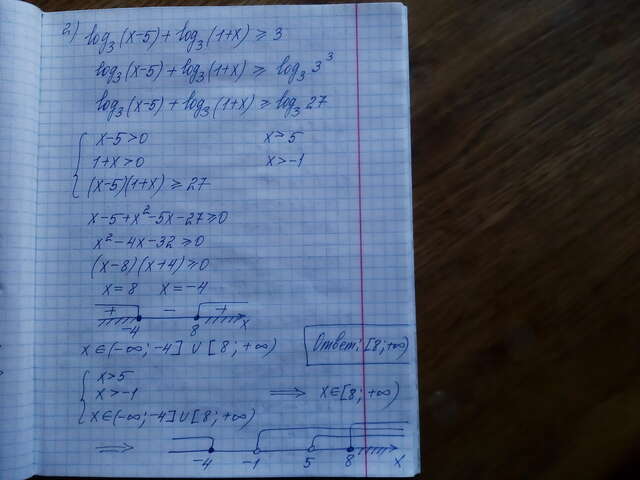 2) log₃(x-5) + log₃(1+x) ≥ 3
log₃(x-5) + log₃(1+x) ≥ log₃ 3³
log₃(x-5) + log₃(1+x) ≥ log₃ 27
x-5>0 x>5
1+x>0 x>-1
(x-5)(1+x) ≥ 27
x-5+x²-5x-27≥0
x²-4x-32≥0
(x-8)(x+4)≥0
x=8 x=-4
+ - +
-4 8 x
x∈(-∞;-4]∪[8;+∞)
Ответ: [8;+∞)
x>5
x>-1 ⟹ x∈[8;+∞)
x∈(-∞;-4]∪[8;+∞)
⟹ -4 -1 5 8 x